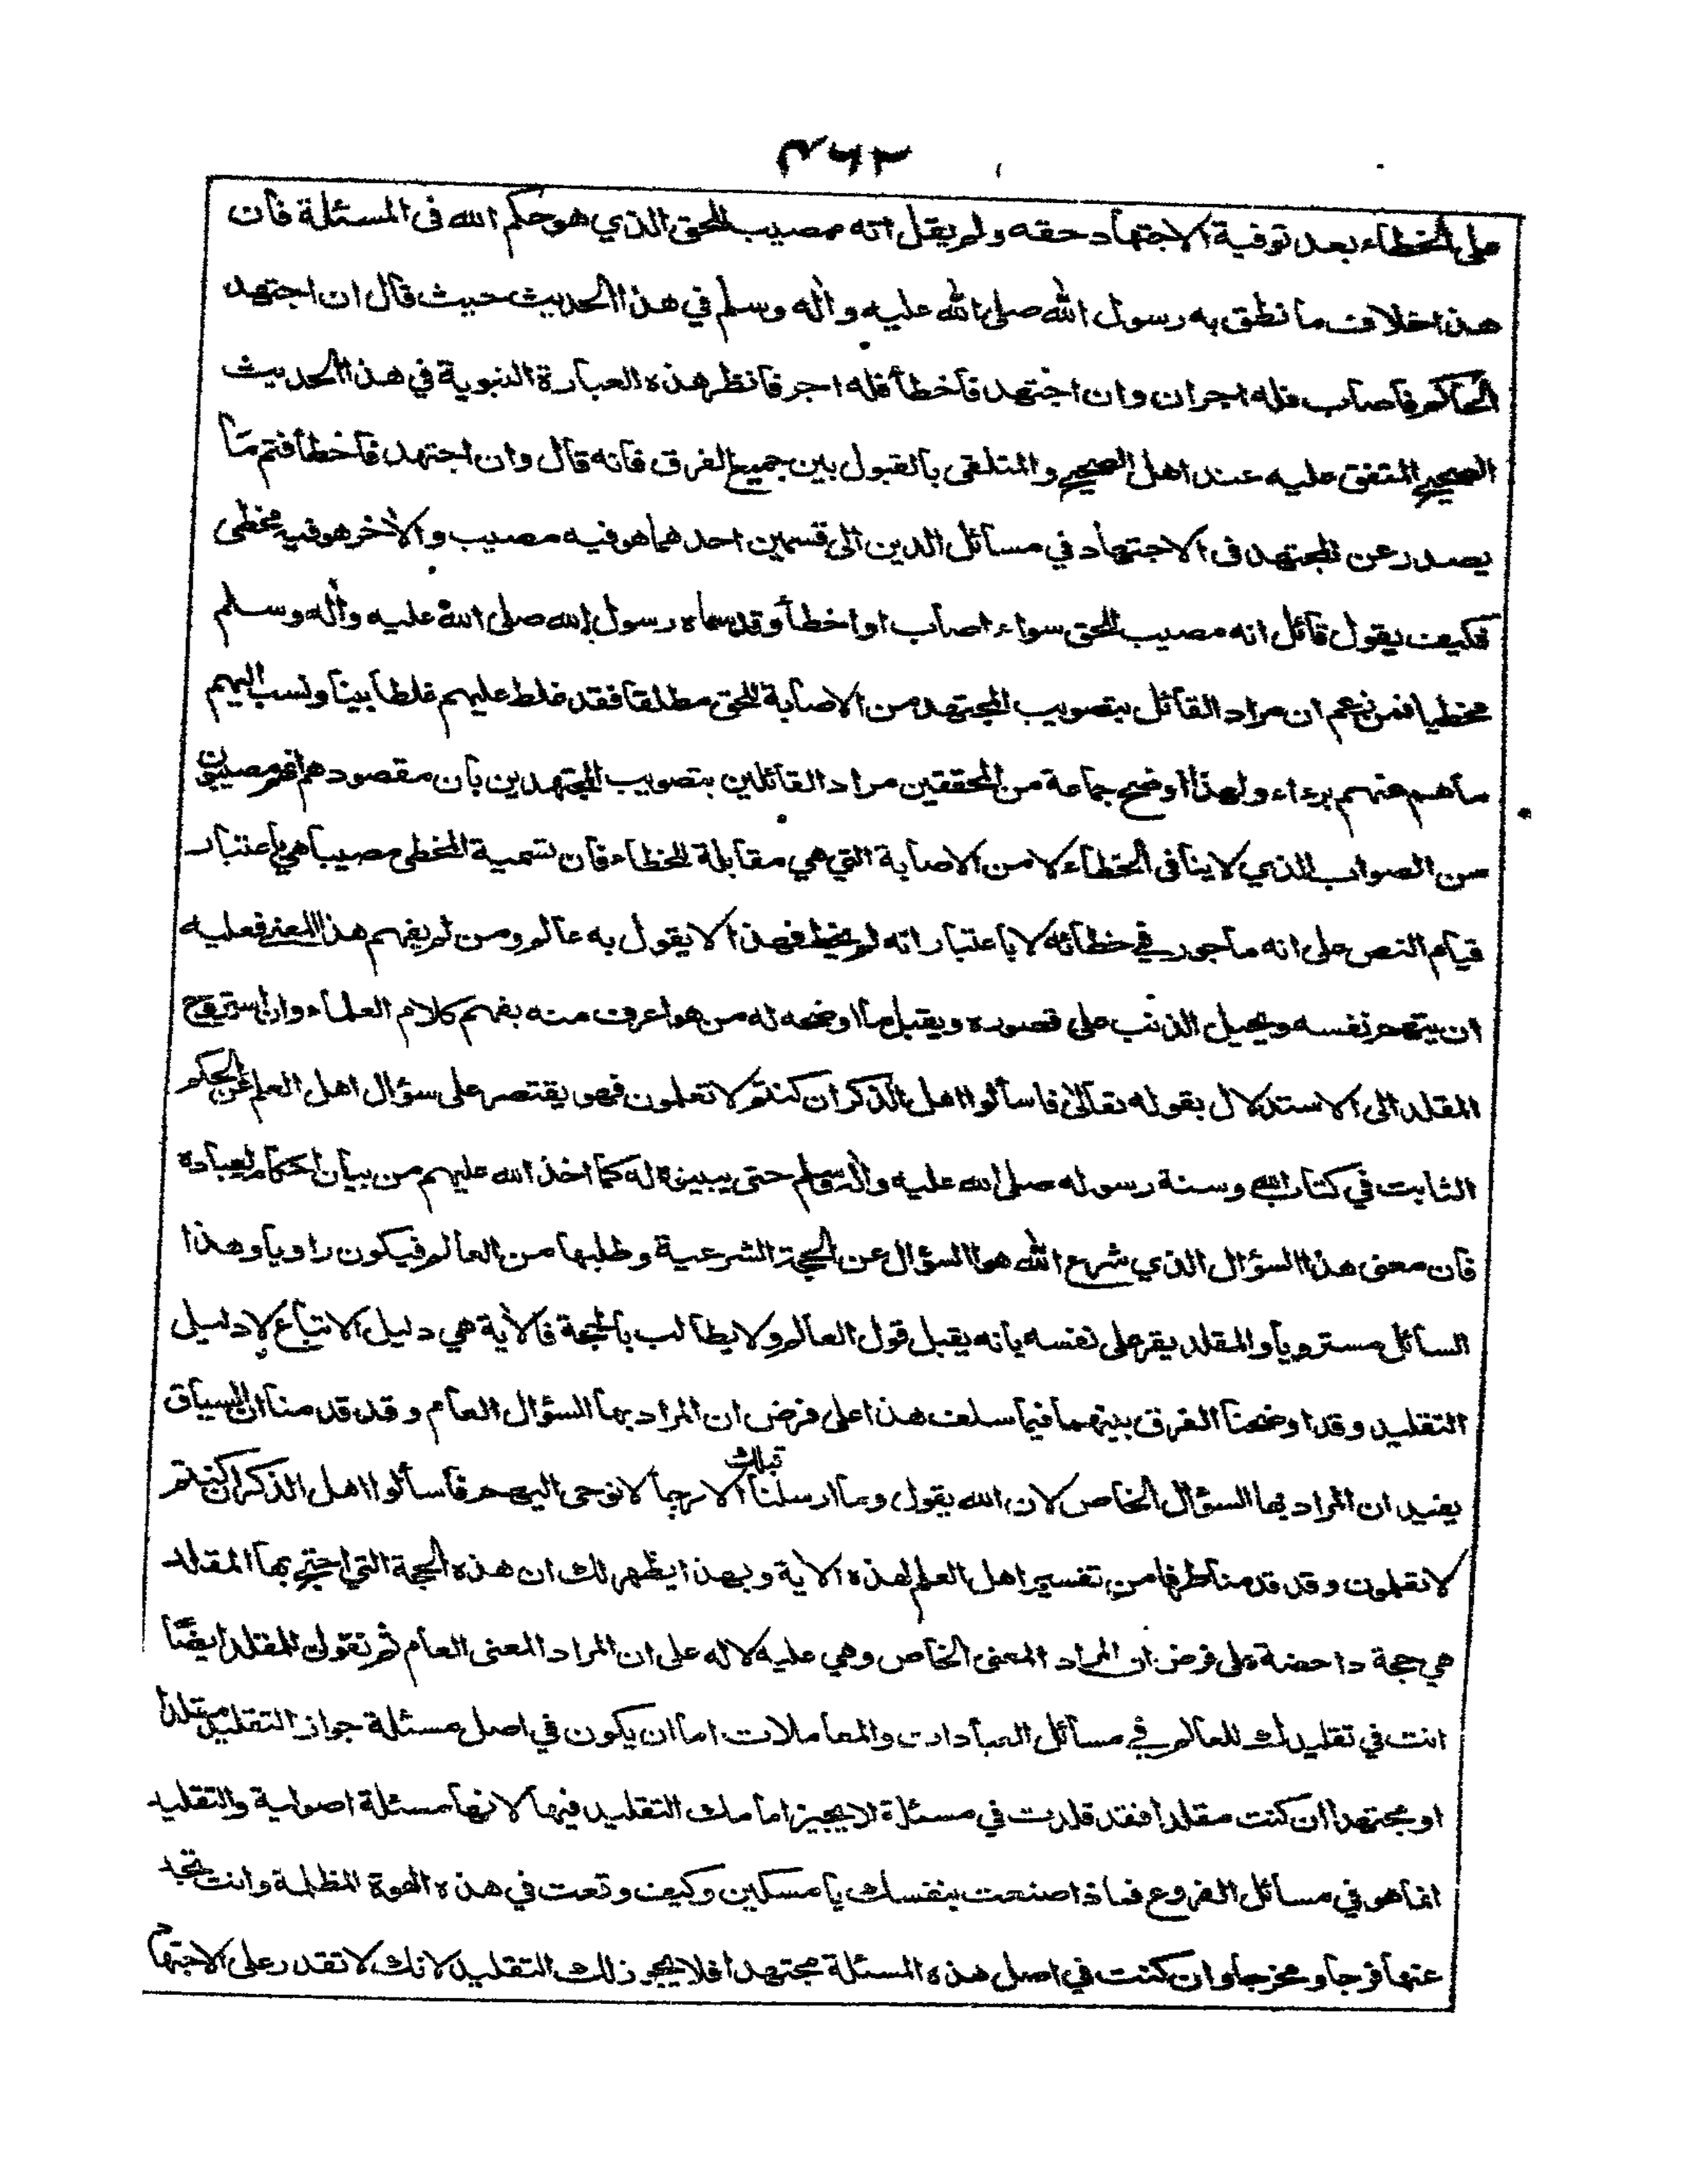 ٣٦٢
على الخطاء بعد توفية الاجتهاد حقه ولم يقل انه مصيب للحق الذي هو حكم الله فى المسئلة فان
هذا خلاف ما نطق به رسول الله صلى الله عليه وأله وسلم في هذا الحديث حيث قال ان اجتهد
الحاكم فاصاب فله اجران وان اجتهد فاخطأ فله اجر فانظر هذه العبارة النبوية في هذا الحديث
الصحيح المتفق عليه عند اهل الصحيح والمتلقى بالقبول بين جميع الفرق فانه قال وان اجتهد فاخطأ فقسم ما
يصدر عن المجتهد فى الاجتهاد في مسائل الدين الى قسمين احدهما هو فيه مصيب والأخر هو فيه مخطى
فكيف يقول قائل انه مصيب للحق سواء اصاب او اخطأ وقد سماه رسول الله صلى الله عليه وأله وسلم
مخطيا فمن زعم ان مراد القائل بتصويب المجتهد من الاصابة للحق مطلقا فقد غلط عليهم غلطا بينا ونسب اليهم
ما هم عنهم برءاء ولهذا اوضح جماعة من المحققين مراد القائلين بتصويب المجتهدين بان مقصودهم انهم مصيبون
من الصواب الذي لا ينافى الخطاء لا من الاصابة التي هي مقابلة للخطاء فان تسمية المخطى مصيبا هي باعتبار
قيام النص على انه ماجور في خطائه لا باعتبار انه لم يخط فهذا لا يقول به عالم ومن لم يفهم هذا المعنى فعليه
ان يتهم نفسه ويحيل الذنب على قصوره ويقبل ما اوضحه له من هو اعرف منه بفهم كلام العلماء وان استروح
المقلد الى الاستدلال بقوله تعالى فاسألوا اهل الذكر ان كنتم لا تعلمون فهو يقتصر على سؤال اهل العلم عن الحكم
الثابت في كتاب الله وسنة رسوله صلى الله عليه وأله وسلم حتى يبينوه له كما اخذ الله عليهم من بيان احكامه لعباده
فان معنى هذا السؤال الذي شرع الله هو السؤال عن الحجة الشرعية وطلبها من العالم فيكون راويا وهذا
السائل مسترويا والمقلد يقر على نفسه بانه يقبل قول العالم ولا يطالب بالحجة فالأية هي دليل الاتباع لا دليل
التقليد وقد اوضحنا الفرق بينهما فيما سلف هذا على فرض ان المراد بها السؤال العام وقد قدمنا ان السياق
يفيد ان المراد بها السؤال الخاص لان الله يقول وما ارسلنا قبلك الا رجالا نوحى اليهم فاسألوا اهل الذكر ان كنتم
لا تعلمون وقد قدمنا طرفا من تفسير اهل العلم لهذه الأية وبهذا يظهر لك ان هذه الحجة التي احتج بها المقلد
هي حجة داحضة على فرض ان المراد المعنى الخاص وهي عليه لا له على ان المراد المعنى العام ثم نقول للمقلد ايضا
انت في تقليدك للعالم في مسائل العبادات والمعاملات اما ان يكون في اصل مسئلة جواز التقليد مقلدا
او مجتهدا ان كنت مقلدا فقد قلدت في مسئلة لا يجيز امامك التقليد فيها لانها مسئلة اصولية والتقليد
انما هو في مسائل الفروع فماذا صنعت بنفسك يا مسكين وكيف وقعت في هذه الهوة المظلمة وانت تجد
عنها فرجا ومخرجا وان كنت في اصل هذه المسئلة مجتهدا فلا يجوز لك التقليد لانك لا تقدر على الاجتهاد